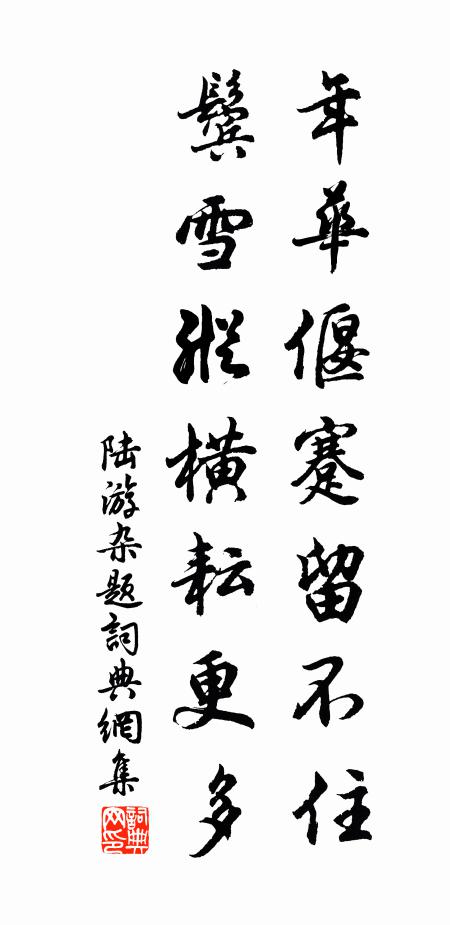 年華偃蹇留不住
鬓雪縱橫耘更多
陆游杂题詞典網集
詞典网印